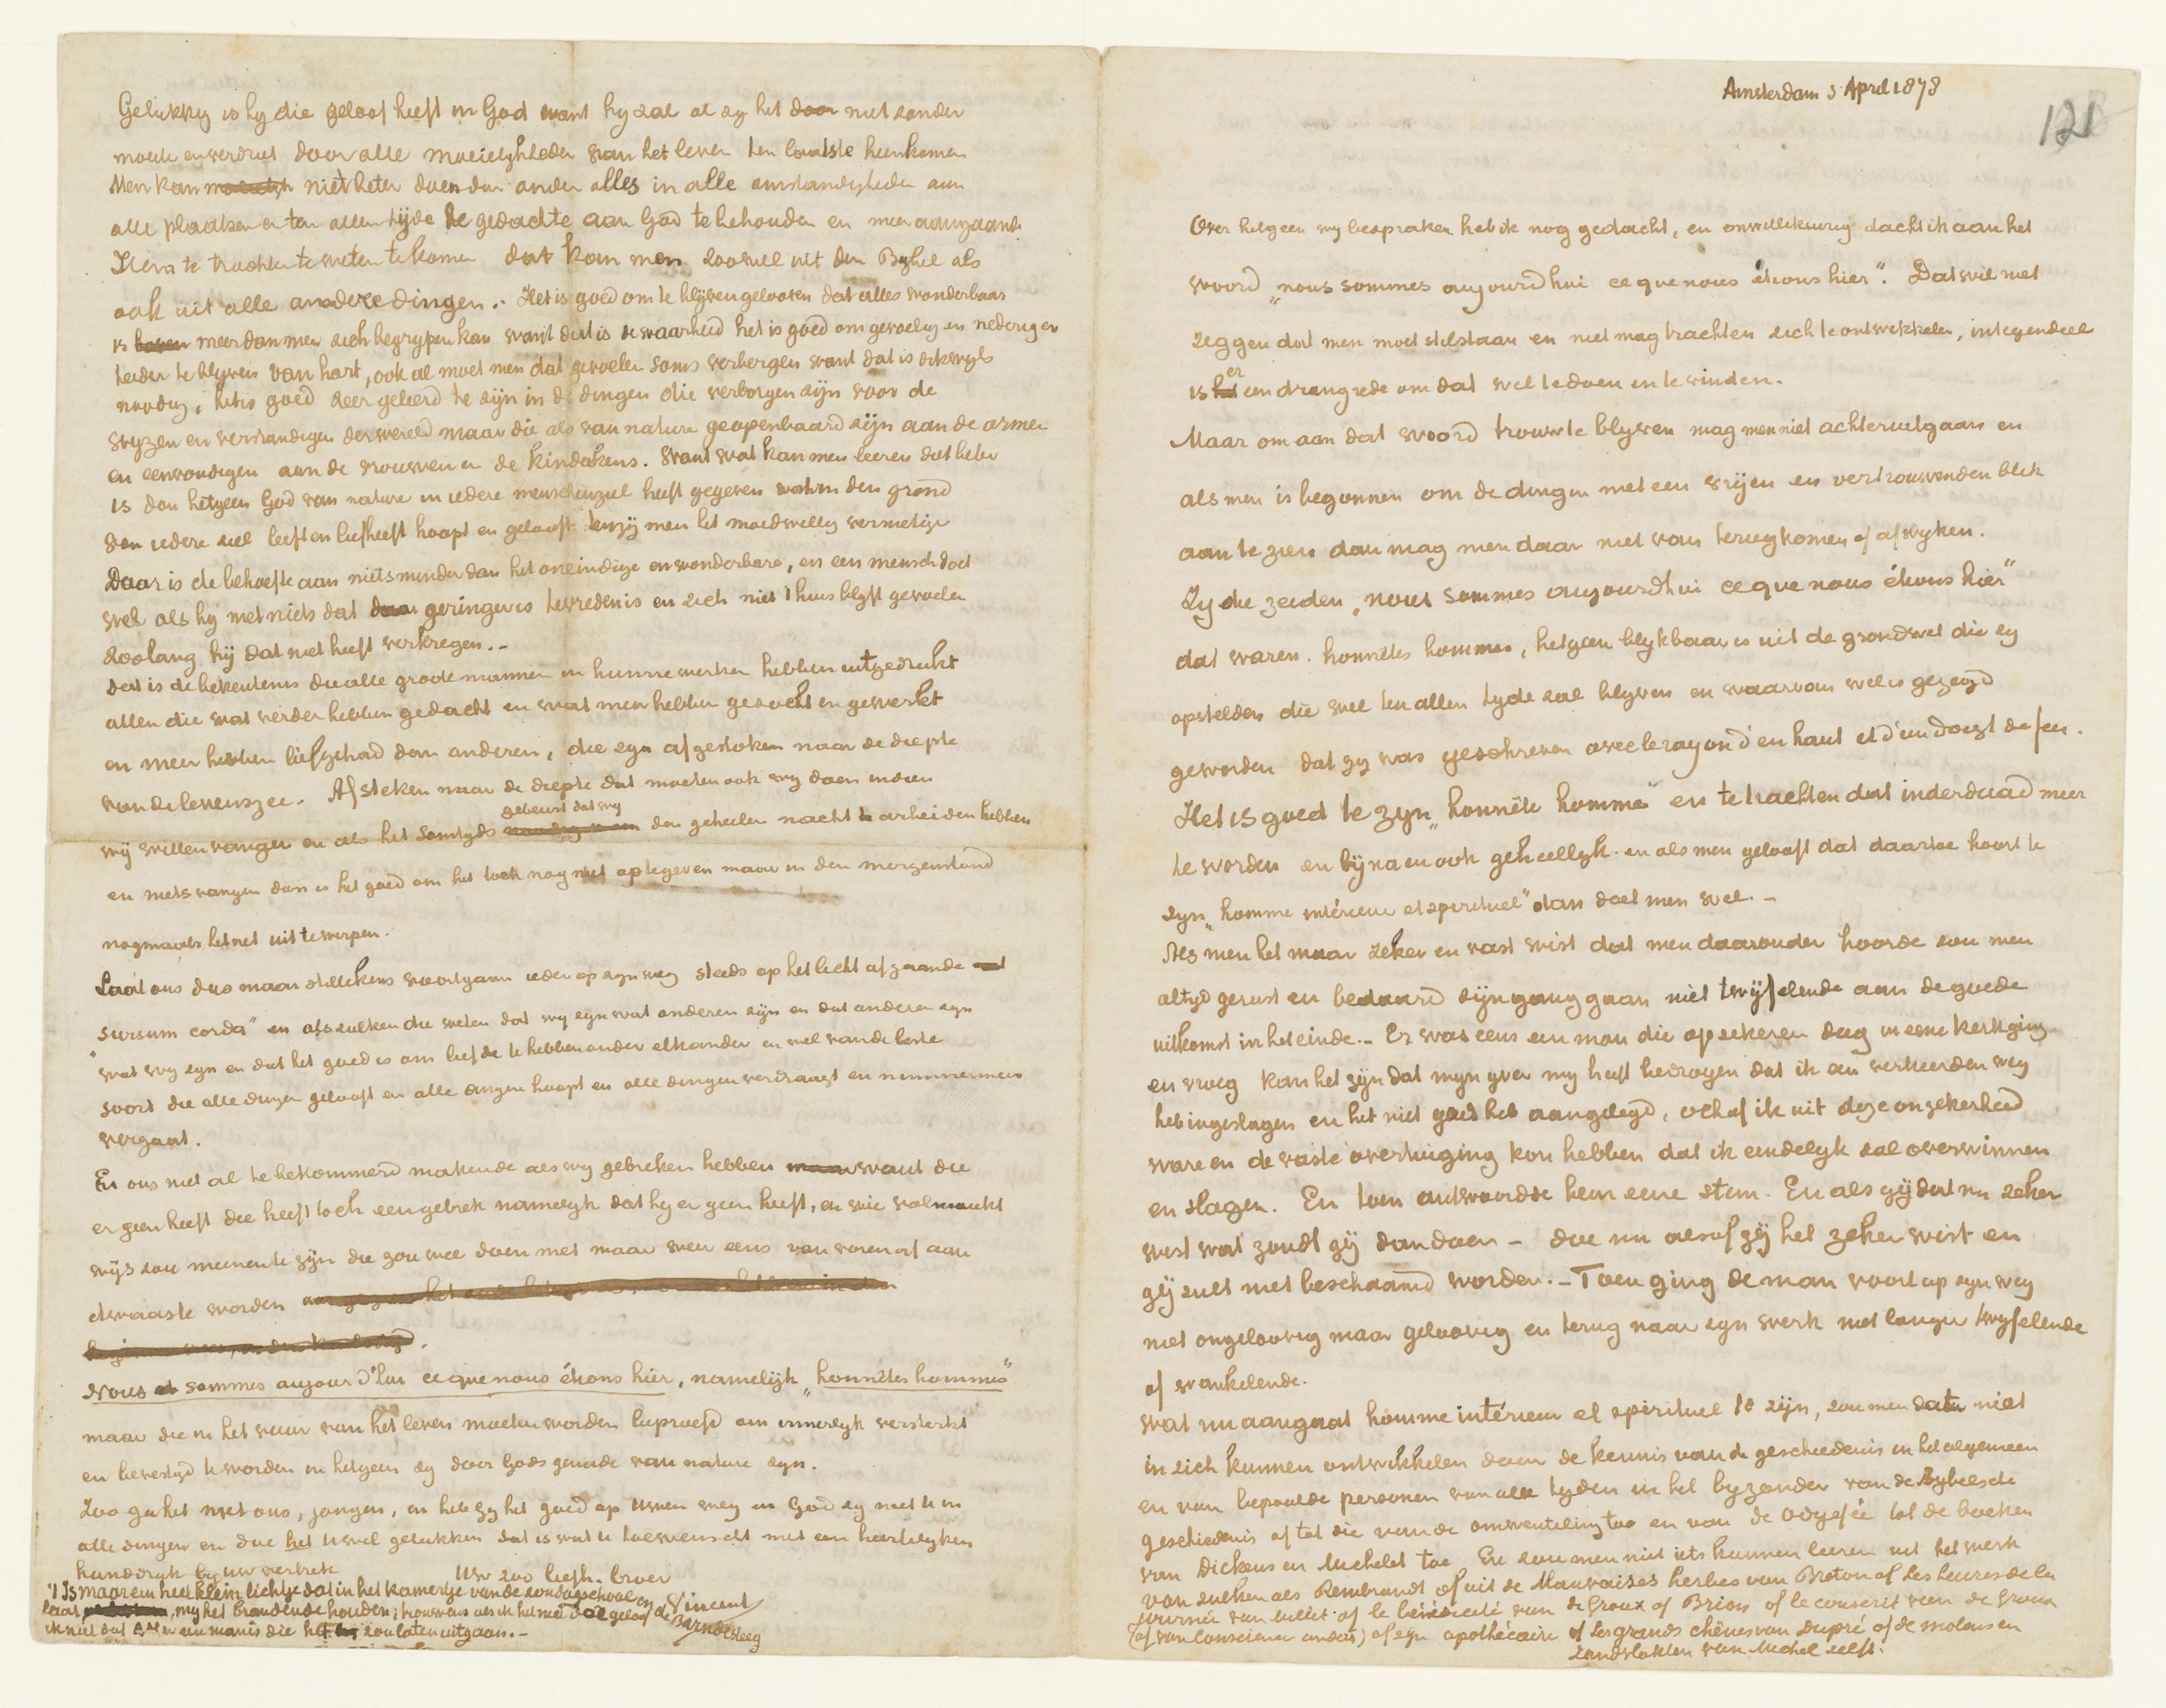 Amsterdam 3 April 1878
121
Over hetgeen wij bespraken heb ik nog gedacht, en onwillekeurig dacht ik aan het
woord „nous sommes aujourd'hui ce que nous étions hier”. Dat wil niet
zeggen dat men moet stilstaan en niet mag trachten zich te ontwikkelen, integendeel
is er een drangrede om dat wel te doen en te vinden.
Maar om aan dat woord trouw te blijven mag men niet achteruitgaan en
als men is begonnen om de dingen met een vrijen en vertrouwenden blik
aan te zien dan mag men daar niet van terugkomen of afwijken.
Zij die zeiden „nous sommes aujourd'hui ce que nous étions hier”
dat waren honnêtes hommes, hetgeen blijkbaar is uit de grondwet die zij
opstelden die wel ten allen tijde zal blijven en waarvan wel is gezegd
geworden dat zij was geschreven avec le rayon d'en haut et d'un doigt de feu.
Het is goed te zijn „honnête homme” en te trachten dat inderdaad meer
te worden en bijna en ook geheellijk en als men gelooft dat daartoe hoort te
zijn „homme intérieur et spirituel” dan doet men wel.–
Als men het maar zeker en vast wist dat men daaronder hoorde zou men
altijd gerust en bedaard zijn gang gaan niet twijfelende aan de goede
uitkomst in het einde.– Er was eens een man die op zekeren dag in eene kerk ging
en vroeg kan het zijn dat mijn ijver mij heeft bedrogen dat ik een verkeerden weg
heb ingeslagen en het niet goed heb aangelegd, och of ik uit deze onzekerheid
ware en de vaste overtuiging kon hebben dat ik eindelijk zal overwinnen
en slagen. En toen antwoordde hem eene stem. En als gij dat nu zeker
wist wat zoudt gij dan doen – doe nu alsof gij het zeker wist en
gij zult niet beschaamd worden.– Toen ging de man voort op zijn weg
niet ongeloovig maar geloovig en terug naar zijn werk niet langer twijfelende
of wankelende.
Wat nu aangaat homme intérieur et spirituel te zijn, zou men dat niet
in zich kunnen ontwikkelen door de kennis van de geschiedenis in het algemeen
en van bepaalde personen van alle tijden in het bijzonder van de Bijbelsche
geschiedenis af tot die van de omwenteling toe en van de odyssée tot de boeken
van Dickens en Michelet toe. En zou men niet iets kunnen leeren uit het werk
van zulken als Rembrandt of uit de Mauvaises herbes van Breton of Les heures de la
journée van Millet of le bénédicité van de Groux of Brion of le conscrit van de Groux
(of van Conscience anders) of zijn apothécaire of Les grands chênes van Dupré of de molens en
zandvlakten van Michel zelfs.
Gelukkig is hij die geloof heeft in God want hij zal al zij het door niet zonder
moeite en verdriet door alle moeielijkheden van het leven ten laatste heenkomen
Men kan niet beter doen dan onder alles in alle omstandigheden aan
alle plaatsen en ten allen tijde de gedachte aan God te behouden en meer aangaande
Hem te trachten te weten te komen dat kan men zoowel uit den Bijbel als
ook uit alle andere dingen.- Het is goed om te blijven gelooven dat alles wonderbaar
is boven meer dan men zich begrijpen kan want dat is de waarheid het is goed om gevoelig en nederig en
teeder te blijven van hart, ook al moet men dat gevoelen soms verbergen want dat is dikwijls
noodig, het is goed zeer geleerd te zijn in de dingen die verborgen zijn voor de
wijzen en verstandigen der wereld maar die als van nature geopenbaard zijn aan de armen
en eenvoudigen aan de vrouwen en de kinderkens. Want wat kan men leeren dat beter
is dan hetgeen God van nature in iedere menschenziel heeft gegeven wat in den grond
van iedere ziel leeft en liefheeft hoopt en gelooft tenzij men het moedwillig vernielige
Daar is de behoefte aan niets minder dan het oneindige en wonderbare, en een mensch doet
wel als hij met niets dat daar geringer is tevreden is en zich niet thuis blijft gevoelen
zoolang hij dat niet heeft verkregen.–
Dat is de bekentenis die alle groote mannen in hunne werken hebben uitgedrukt
allen die wat verder hebben gedacht en wat meer hebben gezocht en gewerkt
en meer hebben liefgehad dan anderen, die zijn afgestoken naar de diepte
van de levenszee. Afsteken naar de diepte dat moeten ook wij doen indien
gebeurt dat wij
wij willen vangen en als het somtijds den geheelen nacht arbeiden hebben
en niets vangen dan is het goed om het toch nog niet optegeven maar in den morgenstond
nogmaals het net uit te werpen.
Laat ons dus maar stillekens voortgaan ieder op zijn weg steeds op het licht afgaande
„sursum corda” en als zulken die weten dat wij zijn wat anderen zijn en dat anderen zijn
wat wij zijn en dat het goed is om liefde te hebben onder elkander en wel van de beste
soort die alle dingen gelooft en alle dingen hoopt en alle dingen verdraagt en nimmermeer
vergaat.
En ons niet al te bekommerd makende als wij gebreken hebben maar want die
er geen heeft die heeft toch een gebrek namelijk dat hij er geen heeft, en wie volmaakt
wijs zou meenen te zijn die zou wel doen met maar weer eens van voren af aan
dwaas te worden
Nous sommes aujourd'hui ce que nous étions hier, namelijk „honnêtes hommes”
maar die in het vuur van het leven moeten worden beproefd om innerlijk versterkt
en bevestigd te worden in hetgeen zij door Gods genade van nature zijn.
Zoo ga het met ons, jongen, en heb gij het goed op Uwen weg en God zij met U in
alle dingen en doe het U wel gelukken dat is wat U toewenscht met een hartelijken
handdruk bij uw vertrek
Uw zoo liefh. broer
Vincent
't Is maar een heel klein lichtje dat in het kamertje van de zondagschool
laat mij het brandende houden; trouwens als ik het niet doe geloof
ik niet dat een man is die het zou laten uitgaan.–